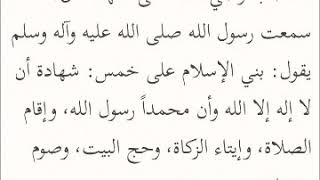 سمعت رسول الله صلى الله عليه وآله وسلم
يقول: بني الإسلام على خمس: شهادة أن
لا إله إلا الله وأن محمداً رسول الله، وإقام
الصلاة، وإيتاء الزكاة، وحج البيت، وصوم